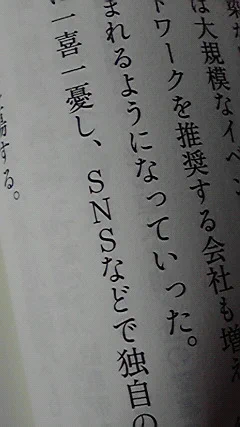 は大規模なイベン
トワークを推奨する会社も増え
まれるようになっていった。
に一喜一憂し、SNSなどで独自の
場する。